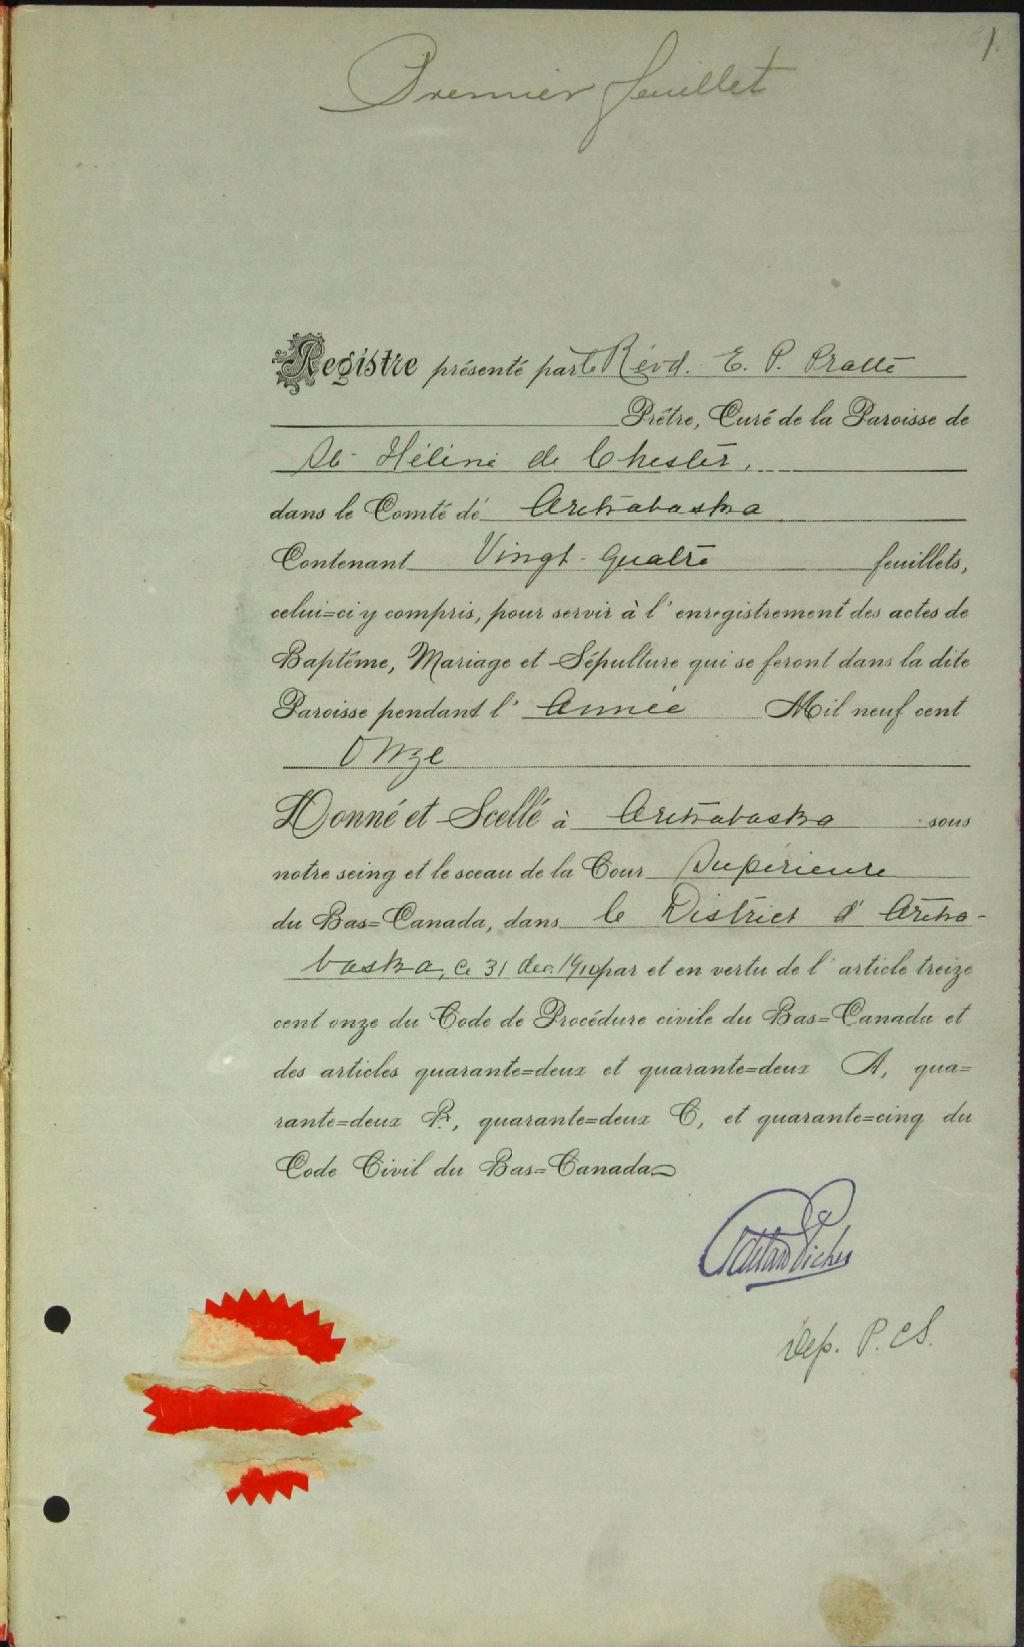 1
Premier feuillet
Registre présenté par le Révd. E. P. Pratte
Prêtre, Curé de la Paroisse de
Ste Hélène de Chester,
dans le Comté de Arthabaska
Contenant Vingt-quatre feuillets,
celui=ci y compris, pour servir à l'enregistrement des actes de
Baptême, Mariage et Sépulture qui se feront dans la dite
Paroisse pendant l' Année Mil neuf cent
Onze
Donné et Scellé à Arthabaska sous
notre seing et le sceau de la Cour Supérieure
du Bas=Canada, dans le District d'Artha-
baska, ce 31 dec. 1910 par et en vertu de l'article treize
cent onze du Code de Procédure civile du Bas=Canada et
des articles quarante=deux et quarante=deux A, qua=
rante=deux B, quarante=deux C, et quarante=cinq du
Code Civil du Bas=Canada
Dep. P. C S.